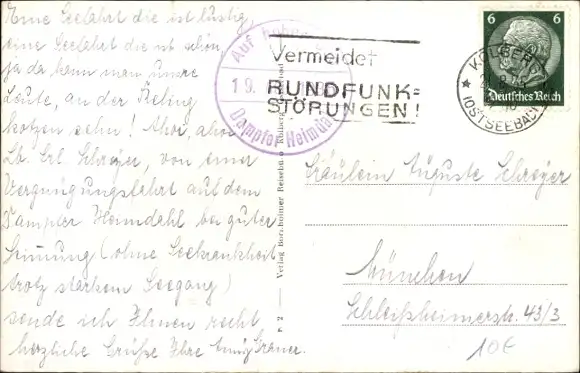 Eine Seefahrt die ist lustig,
eine Seefahrt die ist schön,
ja da kann man unsre
Leute, an der Reling
kotzen sehn! Ahoi, ahoi
Lb. Frl. Schreyer, von einer
Vergnügungsfahrt auf dem
Dampfer Heimdahl bei guter
Stimmung (ohne Seekrankheit
trotz starkem Seegang)
sende ich Ihnen recht
herzliche Grüße Ihre
Auf hoher
19.
Dampfer Heimdal
Vermeidet
RUNDFUNK=
STÖRUNGEN!
KOLBERG
(OSTSEEBAD)
6 6
Deutsches Reich
P 2 — Verlag Reisebüro
Fräulein Auguste Schreyer
München
Schleißheimerstr. 43/3
10€